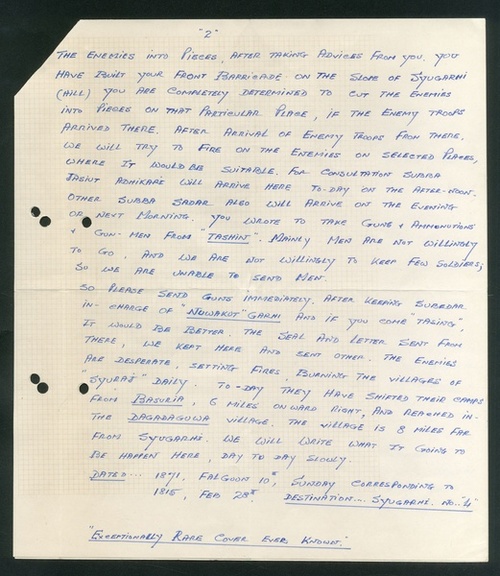 "2"
THE ENEMIES INTO PIECES, AFTER TAKING ADVICES FROM YOU. YOU
HAVE BUILT YOUR FRONT BARRICADE ON THE SLOPE OF SYUGARHI
(HILL) YOU ARE COMPLETELY DETERMINED TO CUT THE ENEMIES
INTO PIECES ON THAT PARTICULAR PLACE, IF THE ENEMY TROOPS
ARRIVED THERE. AFTER ARRIVAL OF ENEMY TROOPS FROM THERE,
WE WILL TRY TO FIRE ON THE ENEMIES ON SELECTED PLACES,
WHERE IT WOULD BE SUITABLE. FOR CONSULTATION SUBBA
JASIUT ADHIKARI WILL ARRIVE HERE TO-DAY ON THE AFTER-NOON.
OTHER SUBBA SADAR ALSO WILL ARRIVE ON THE EVENING
OR NEXT MORNING. YOU WROTE TO TAKE GUNS & AMMONUTIONS
& GUN-MEN FROM "TASHIN". MAINLY MEN ARE NOT WILLINGLY
TO GO, AND WE ARE NOT WILLINGLY TO KEEP FEW SOLDIERS;
SO WE ARE UNABLE TO SEND MEN.
SO PLEASE SEND GUNS IMMEDIATELY. AFTER KEEPING SUBEDAR
IN-CHARGE OF "NUWAKOT" GARHI AND IF YOU COME "TALING",
IT WOULD BE BETTER. THE SEAL AND LETTER SENT FROM
THERE, WE KEPT HERE AND SENT OTHER. THE ENEMIES
ARE DESPERATE, SETTING FIRES, BURNING THE VILLAGES OF
"SYURAJ" DAILY. TO-DAY THEY HAVE SHIFTED THEIR CAMPS
FROM BASURIA, 6 MILES ONWARD RIGHT, AND REACHED IN-
THE DAGADAGUWA VILLAGE. THE VILLAGE IS 8 MILES FAR
FROM SYUGARHI. WE WILL WRITE WHAT IT GOING TO
BE HAPPEN HERE, DAY TO DAY SLOWLY
DATED... 1871, FALGOON 10th, SUNDAY CORRESPONDING TO
1815, FEB 28th. DESTINATION... SYUGARHI. NO. "4"
"EXCEPTIONALLY RARE COVER EVER KNOWN."